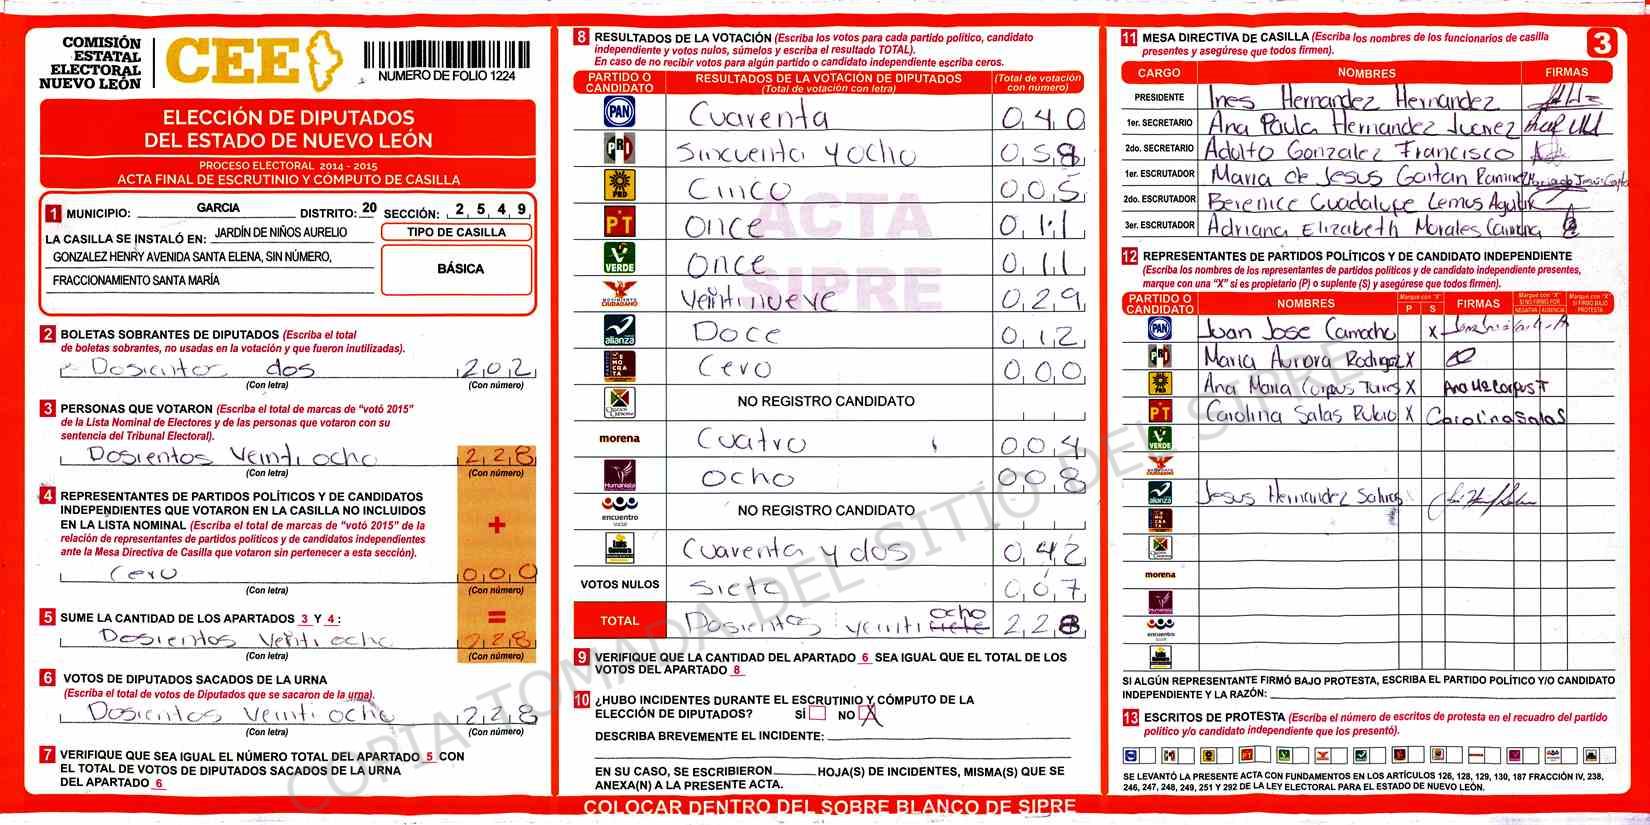 COMISIÓN
ESTATAL
ELECTORAL
NUEVO LEÓN
CEE
NUMERO DE FOLIO 1224
ELECCIÓN DE DIPUTADOS
DEL ESTADO DE NUEVO LEÓN
PROCESO ELECTORAL 2014 - 2015
ACTA FINAL DE ESCRUTINIO Y CÓMPUTO DE CASILLA
1 MUNICIPIO: GARCIA DISTRITO: 20 SECCIÓN: 2 5 4 9
LA CASILLA SE INSTALÓ EN: JARDÍN DE NIÑOS AURELIO
GONZALEZ HENRY AVENIDA SANTA ELENA, SIN NÚMERO,
FRACCIONAMIENTO SANTA MARÍA
TIPO DE CASILLA
BÁSICA
2 BOLETAS SOBRANTES DE DIPUTADOS (Escriba el total
de boletas sobrantes, no usadas en la votación y que fueron inutilizadas).
Dosientos dos 2 0 2
(Con letra) (Con número)
3 PERSONAS QUE VOTARON (Escriba el total de marcas de "votó 2015"
de la Lista Nominal de Electores y de las personas que votaron con su
sentencia del Tribunal Electoral).
Dosientos Veinti ocho 2 2 8
(Con letra) (Con número)
4 REPRESENTANTES DE PARTIDOS POLÍTICOS Y DE CANDIDATOS
INDEPENDIENTES QUE VOTARON EN LA CASILLA NO INCLUIDOS
EN LA LISTA NOMINAL (Escriba el total de marcas de "votó 2015" de la
relación de representantes de partidos políticos y de candidatos independientes
ante la Mesa Directiva de Casilla que votaron sin pertenecer a esta sección).
+
Cero 0 0 0
(Con letra) (Con número)
5 SUME LA CANTIDAD DE LOS APARTADOS 3 Y 4 : =
Dosientos Veinti ocho 2 2 8
(Con letra) (Con número)
6 VOTOS DE DIPUTADOS SACADOS DE LA URNA
(Escriba el total de votos de Diputados que se sacaron de la urna).
Dosientos Veinti ocho 2 2 8
(Con letra) (Con número)
7 VERIFIQUE QUE SEA IGUAL EL NÚMERO TOTAL DEL APARTADO 5 CON
EL TOTAL DE VOTOS DE DIPUTADOS SACADOS DE LA URNA
DEL APARTADO 6
8 RESULTADOS DE LA VOTACIÓN (Escriba los votos para cada partido político, candidato
independiente y votos nulos, súmelos y escriba el resultado TOTAL).
En caso de no recibir votos para algún partido o candidato independiente escriba ceros.
PARTIDO O CANDIDATO RESULTADOS DE LA VOTACIÓN DE DIPUTADOS (Total de votación con letra) (Total de votación con número)
PAN Cuarenta 0 4 0
PRI Sincuenta y ocho 0 5 8
PRD Cinco 0 0 5
PT Once 0 1 1
VERDE Once 0 1 1
MOVIMIENTO CIUDADANO Veintinueve 0 2 9
alianza Doce 0 1 2
DEMOCRATA Cero 0 0 0
NO REGISTRO CANDIDATO
morena Cuatro 0 0 4
Humanista Ocho 0 0 8
encuentro social NO REGISTRO CANDIDATO
Cuarenta y dos 0 4 2
VOTOS NULOS Siete 0 0 7
TOTAL Dosientos veinti siete ocho 2 2 8
ACTA
SIPRE
9 VERIFIQUE QUE LA CANTIDAD DEL APARTADO 6 SEA IGUAL QUE EL TOTAL DE LOS
VOTOS DEL APARTADO 8
10 ¿HUBO INCIDENTES DURANTE EL ESCRUTINIO Y CÓMPUTO DE LA
ELECCIÓN DE DIPUTADOS? SÍ NO X
DESCRIBA BREVEMENTE EL INCIDENTE:
EN SU CASO, SE ESCRIBIERON HOJA(S) DE INCIDENTES, MISMA(S) QUE SE
ANEXA(N) A LA PRESENTE ACTA.
COLOCAR DENTRO DEL SOBRE BLANCO DE SIPRE
11 MESA DIRECTIVA DE CASILLA (Escriba los nombres de los funcionarios de casilla
presentes y asegúrese que todos firmen).
3
CARGO NOMBRES FIRMAS
PRESIDENTE Ines Hernandez Hernandez
1er. SECRETARIO Ana Paula Hernandez Juarez
2do. SECRETARIO Adolfo Gonzalez Francisco
1er. ESCRUTADOR Maria de Jesus Gaitan Ramirez
2do. ESCRUTADOR Berenice Guadalupe Lemus Aguilar
3er. ESCRUTADOR Adriana Elizabeth Morales
12 REPRESENTANTES DE PARTIDOS POLÍTICOS Y DE CANDIDATO INDEPENDIENTE
(Escriba los nombres de los representantes de partidos políticos y de candidato independiente presentes,
marque con una "X" si es propietario (P) o suplente (S) y asegúrese que todos firmen).
PARTIDO O CANDIDATO NOMBRES Marque con "X" P S FIRMAS Marque con "X" SI NO FIRMÓ POR: NEGATIVA AUSENCIA Marque con "X" SI FIRMÓ BAJO PROTESTA
PAN Juan Jose Camacho X
PRI Maria Aurora Rodrigez X
PRD Ana Maria Corpus Torres X Ana Ma Corpus T
PT Carolina Salas Rubio X Carolina Salas
VERDE
alianza Jesus Hernandez
morena
encuentro social
SI ALGÚN REPRESENTANTE FIRMÓ BAJO PROTESTA, ESCRIBA EL PARTIDO POLÍTICO Y/O CANDIDATO
INDEPENDIENTE Y LA RAZÓN:
13 ESCRITOS DE PROTESTA (Escriba el número de escritos de protesta en el recuadro del partido
político y/o candidato independiente que los presentó).
SE LEVANTÓ LA PRESENTE ACTA CON FUNDAMENTOS EN LOS ARTÍCULOS 126, 128, 129, 130, 187 FRACCIÓN IV, 238,
246, 247, 248, 249, 251 Y 292 DE LA LEY ELECTORAL PARA EL ESTADO DE NUEVO LEÓN.
COPIA TOMADA DEL SITIO DEL SIPRE